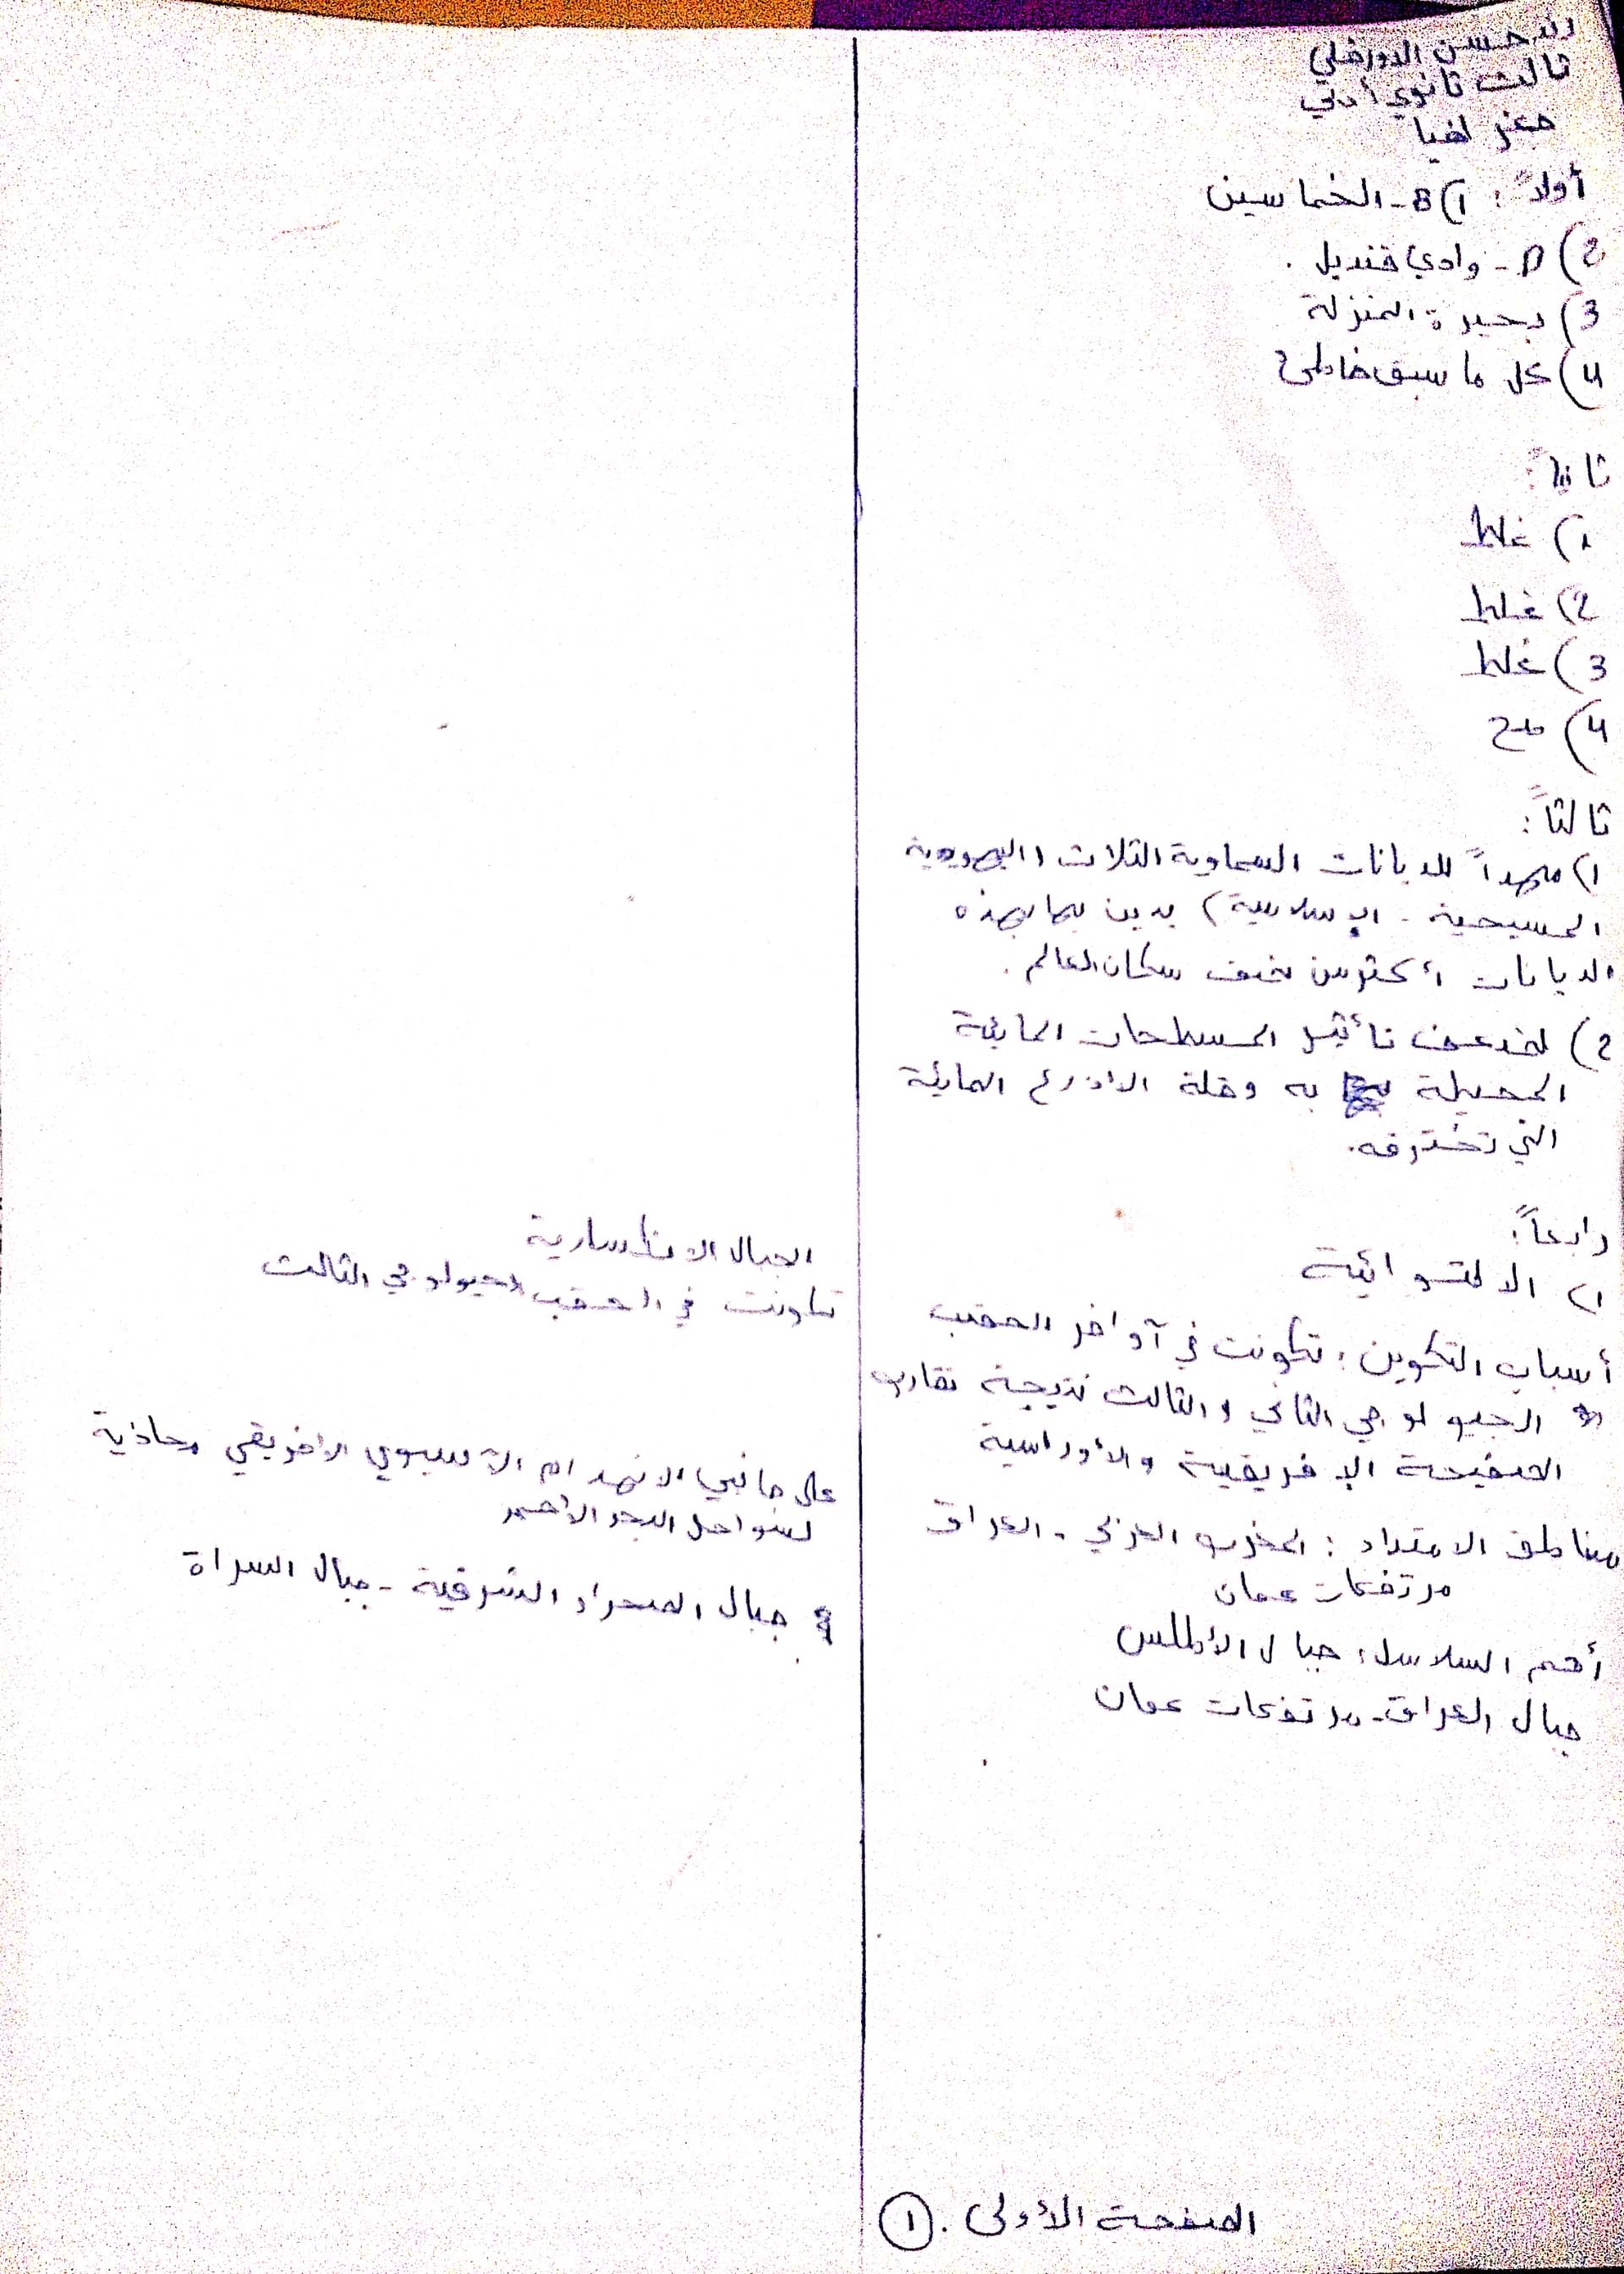 حسن
ثالث ثانوي أدبي
جغرافيا
أولاً: 1) B - الخماسين
2) D - وادي قنديل.
3) بحيرة المنزلة
4) كل ما سبق خاطئ
ثانياً:
1) غلط
2) غلط
3) غلط
4) صح
ثالثاً:
1) مهداً للديانات السماوية الثلاث (اليهودية
المسيحية - الإسلامية) يدين بهذه
الديانات أكثر من نصف سكان العالم.
2) لضعف تأثير المسطحات المائية
المحيطة به وقلة الأذرع المائية
التي تخترقه.
رابعاً:
1) الالتوائية
أسباب التكوين: تكونت في آواخر الحقب
الجيولوجي الثاني والثالث نتيجة تقارب
الصفيحة الإفريقية والأوراسية
مناطق الامتداد: المغرب العربي - العراق
مرتفعات عمان
أهم السلاسل: جبال الأطلس
جبال العراق - مرتفعات عمان
الجبال الانكسارية
تكونت في الحقب الجيولوجي الثالث
على جانبي الانهدام الآسيوي الافريقي محاذية
لسواحل البحر الأحمر
جبال الصحراء الشرقية - جبال السراة
الصفحة الأولى. 1